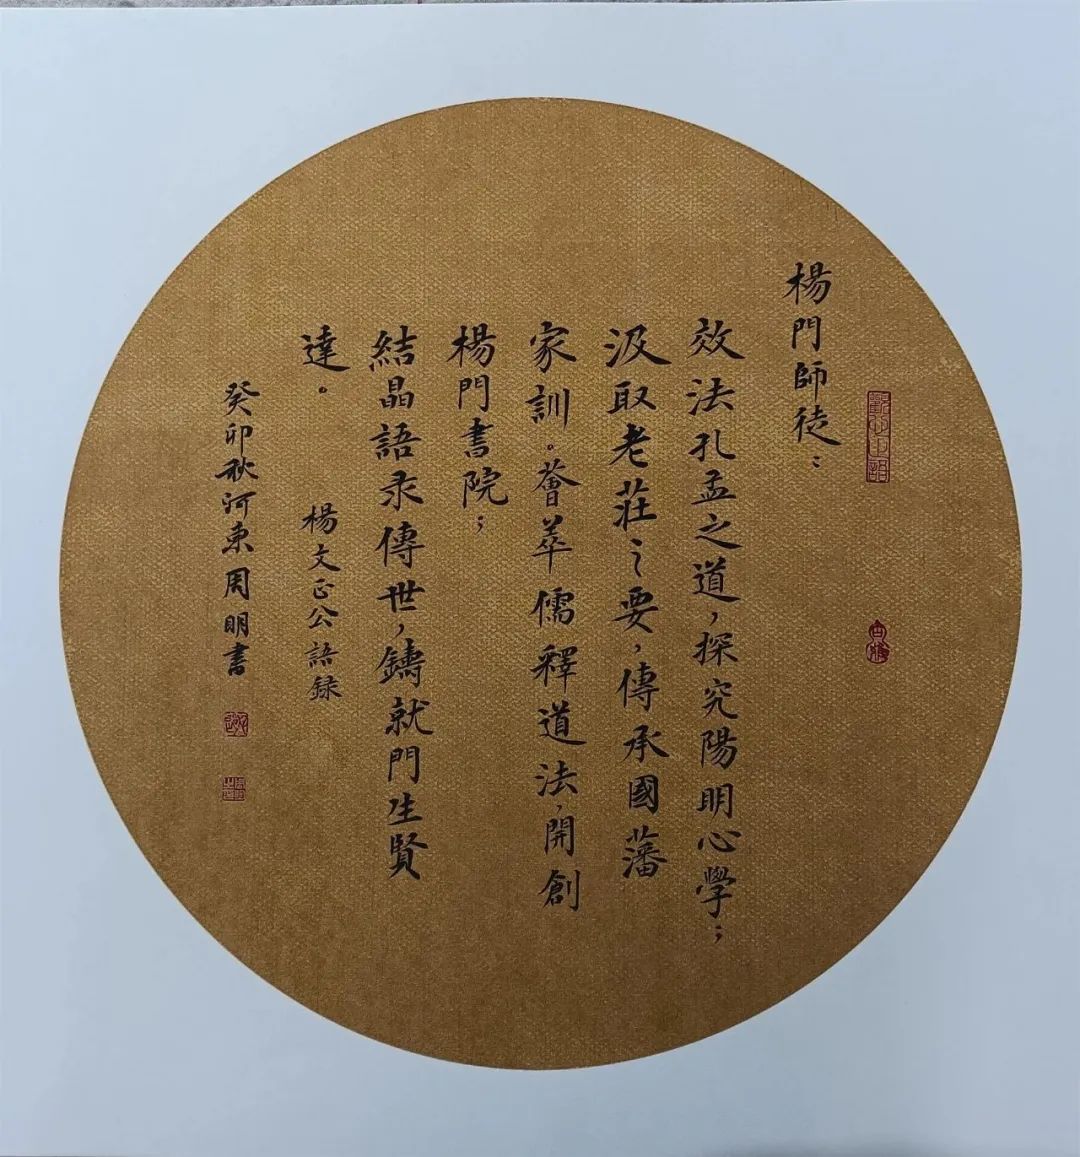 楊門師徒：
效法孔孟之道，探究陽明心學；
汲取老莊之要，傳承國藩
家訓。薈萃儒釋道法，開創
楊門書院；
結晶語录傳世，鑄就門生賢
達。
楊文正公語録
癸卯秋河東周明書